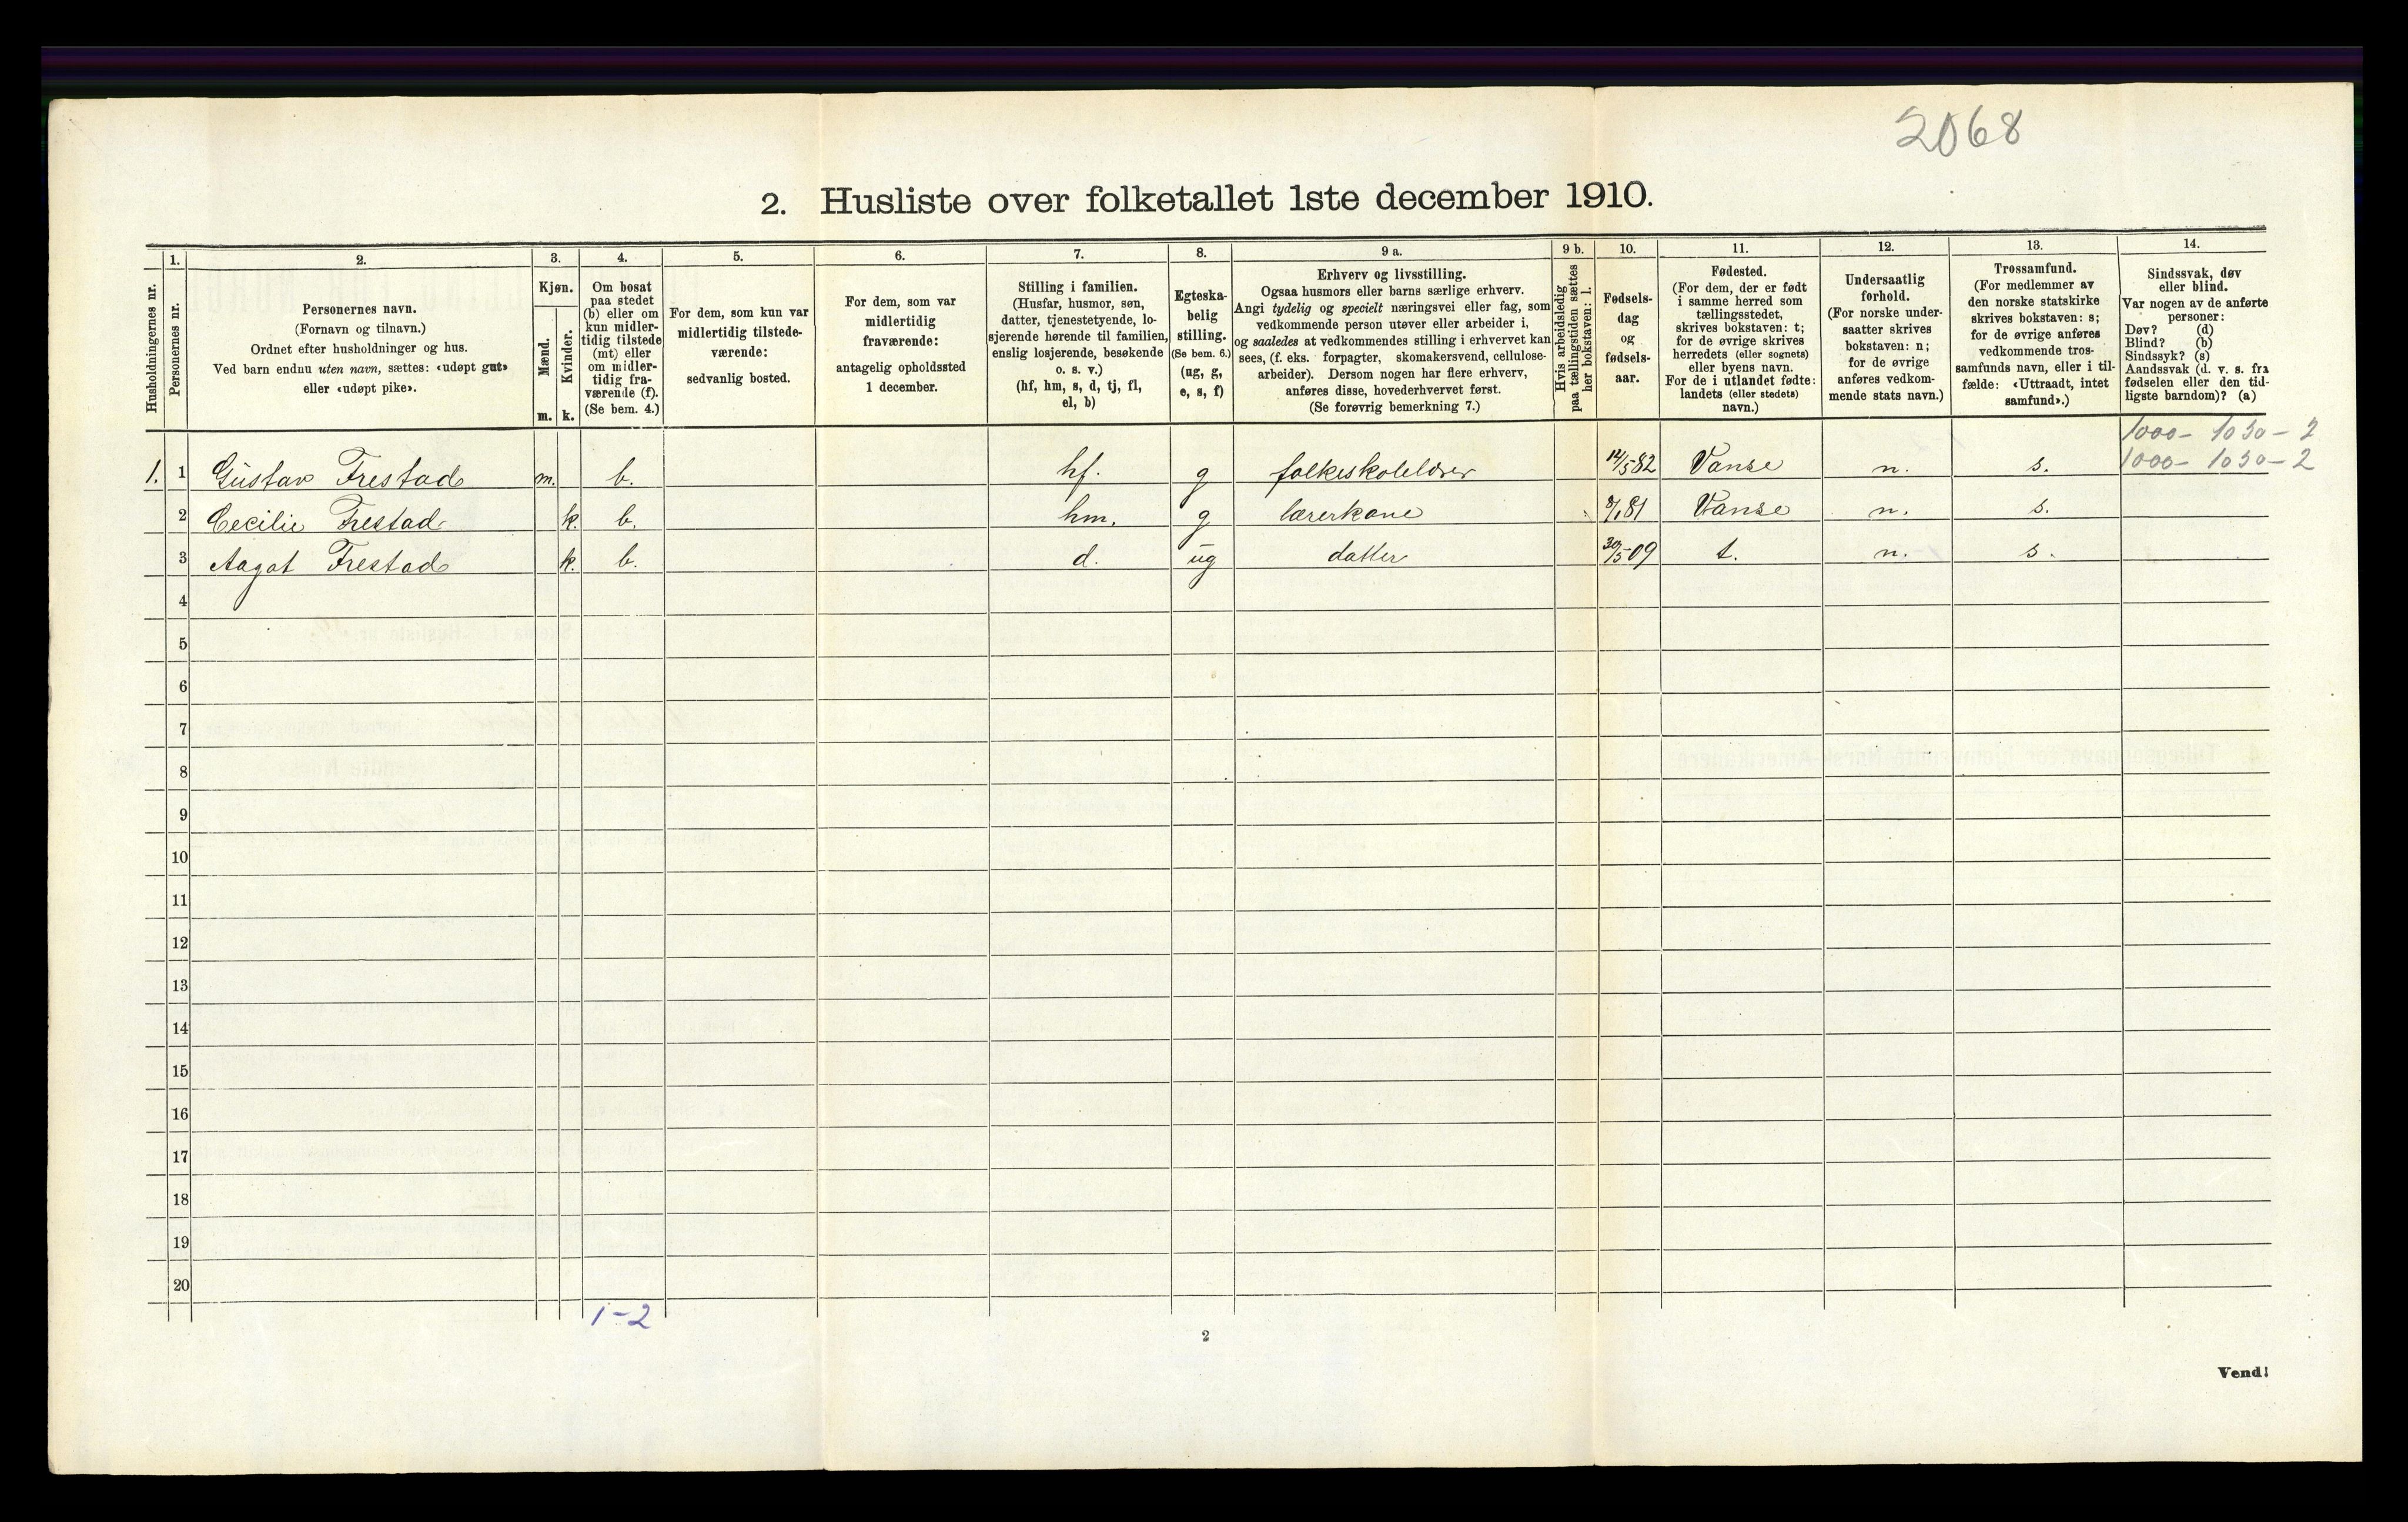 2068
2. Husliste over folketallet 1ste december 1910.
Husholdningernes nr.
1.
Personernes nr.
2.
Personernes navn.
(Fornavn og tilnavn.)
Ordnet efter husholdninger og hus.
Ved barn endnu uten navn, sættes: «udøpt gut»
eller «udøpt pike».
3.
Kjøn.
Mænd.
m.
Kvinder.
k.
4.
Om bosat
paa stedet
(b) eller om
kun midler-
tidig tilstede
(mt) eller
om midler-
tidig fra-
værende (f).
(Se bem. 4.)
5.
For dem, som kun var
midlertidig tilstede-
værende:
sedvanlig bosted.
6.
For dem, som var
midlertidig
fraværende:
antagelig opholdssted
1 december.
7.
Stilling i familien.
(Husfar, husmor, søn,
datter, tjenestetyende, lo-
sjerende hørende til familien,
enslig losjerende, besøkende
o. s. v.)
(hf, hm, s, d, tj, fl,
el, b)
8.
Egteska-
belig
stilling.
(Se bem. 6.)
(ug, g,
e, s, f)
9 a.
Erhverv og livsstilling.
Ogsaa husmors eller barns særlige erhverv.
Angi tydelig og specielt næringsvei eller fag, som
vedkommende person utøver eller arbeider i,
og saaledes at vedkommendes stilling i erhvervet kan
sees, (f. eks. forpagter, skomakersvend, cellulose-
arbeider). Dersom nogen har flere erhverv,
anføres disse, hovederhvervet først.
(Se forøvrig bemerkning 7.)
9 b.
Hvis arbeidsledig
paa tællingstiden sættes
her bokstaven: l.
10.
Fødsels-
dag
og
fødsels-
aar.
11.
Fødested.
(For dem, der er født
i samme herred som
tællingsstedet,
skrives bokstaven: t;
for de øvrige skrives
herredets (eller sognets)
eller byens navn.
For de i utlandet fødte:
landets (eller stedets)
navn.)
12.
Undersaatlig
forhold.
(For norske under-
saatter skrives
bokstaven: n;
for de øvrige
anføres vedkom-
mende stats navn.)
13.
Trossamfund.
(For medlemmer av
den norske statskirke
skrives bokstaven: s;
for de øvrige anføres
vedkommende tros-
samfunds navn, eller i til-
fælde: «Uttraadt, intet
samfund».)
14.
Sindssvak, døv
eller blind.
Var nogen av de anførte
personer:
Døv? (d)
Blind? (b)
Sindssyk? (s)
Aandssvak (d. v. s. fra
fødselen eller den tid-
ligste barndom)? (a)
1000 - 1030 - 2
1. 1 Gustav Frestad m. b. hf. g folkeskolelærer 14/5 82 Vanse n. s. 1000 - 1030 - 2
2 Cecilie Frestad k. b. hm. g lærerkone 8/1 81 Vanse n. s.
3 Aagot Frestad k. b. d. ug datter 30/5 09 t. n. s.
4
5
6
7
8
9
10
11
12
13
14
15
16
17
18
19
20
1-2
2
Vend!